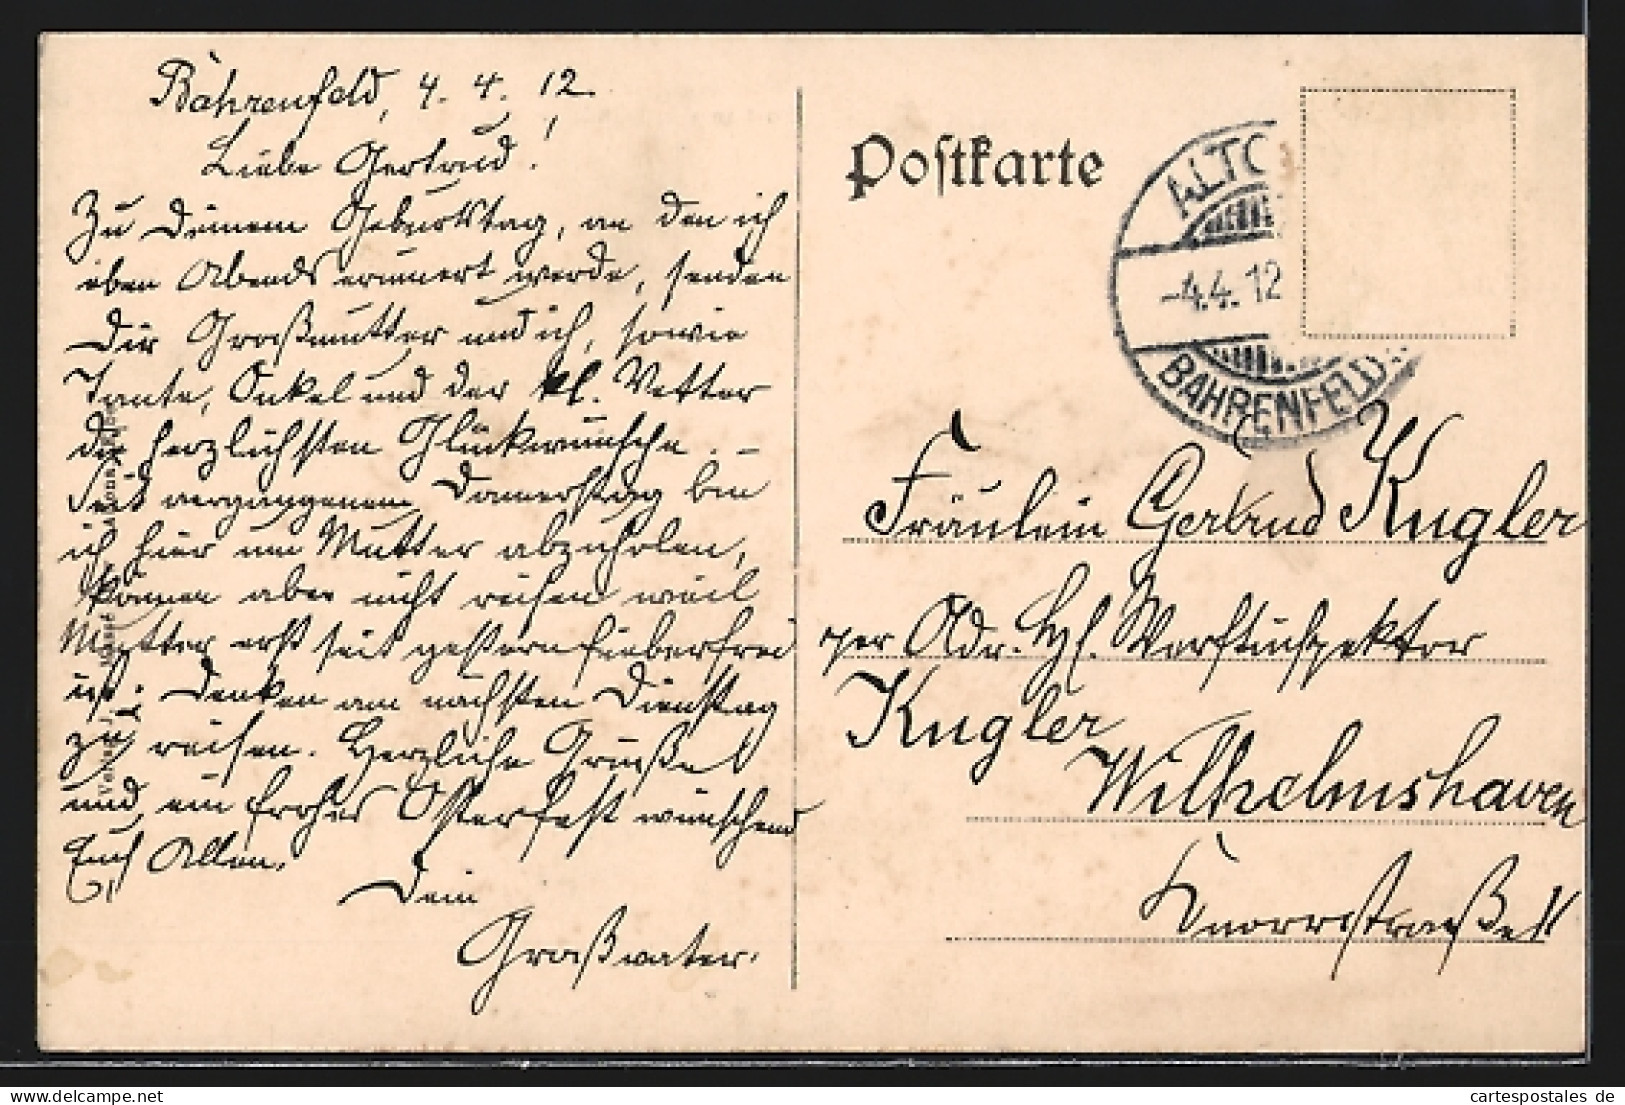 Bahrenfeld, 4. 4. 12.
Liebe Gertrud!
Zu Deinem Geburtstag, an den ich
eben Abends erinnert werde, senden
Dir Großmutter und ich, sowie
Tante, Onkel und der kl. Vetter
die herzlichsten Glückwünsche. –
Seit vergangenem Donnerstag bin
ich hier um Mutter abzuholen,
können aber nicht reisen weil
Mutter erst seit gestern fieberfrei
ist. Denken am nächsten Dienstag
zu reisen. Herzliche Grüße
und ein frohes Osterfest wünschend
Euch Allen.
Dein
Großvater.
Postkarte
ALTO
-4.4.12
BAHRENFELD.
Fräulein Gertrud Kugler
per Adr. H. Werftinspektor
Kugler
Wilhelmshaven
Knorrstraße
Verlag J.
cartespostales de